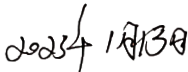 2023年1月13日